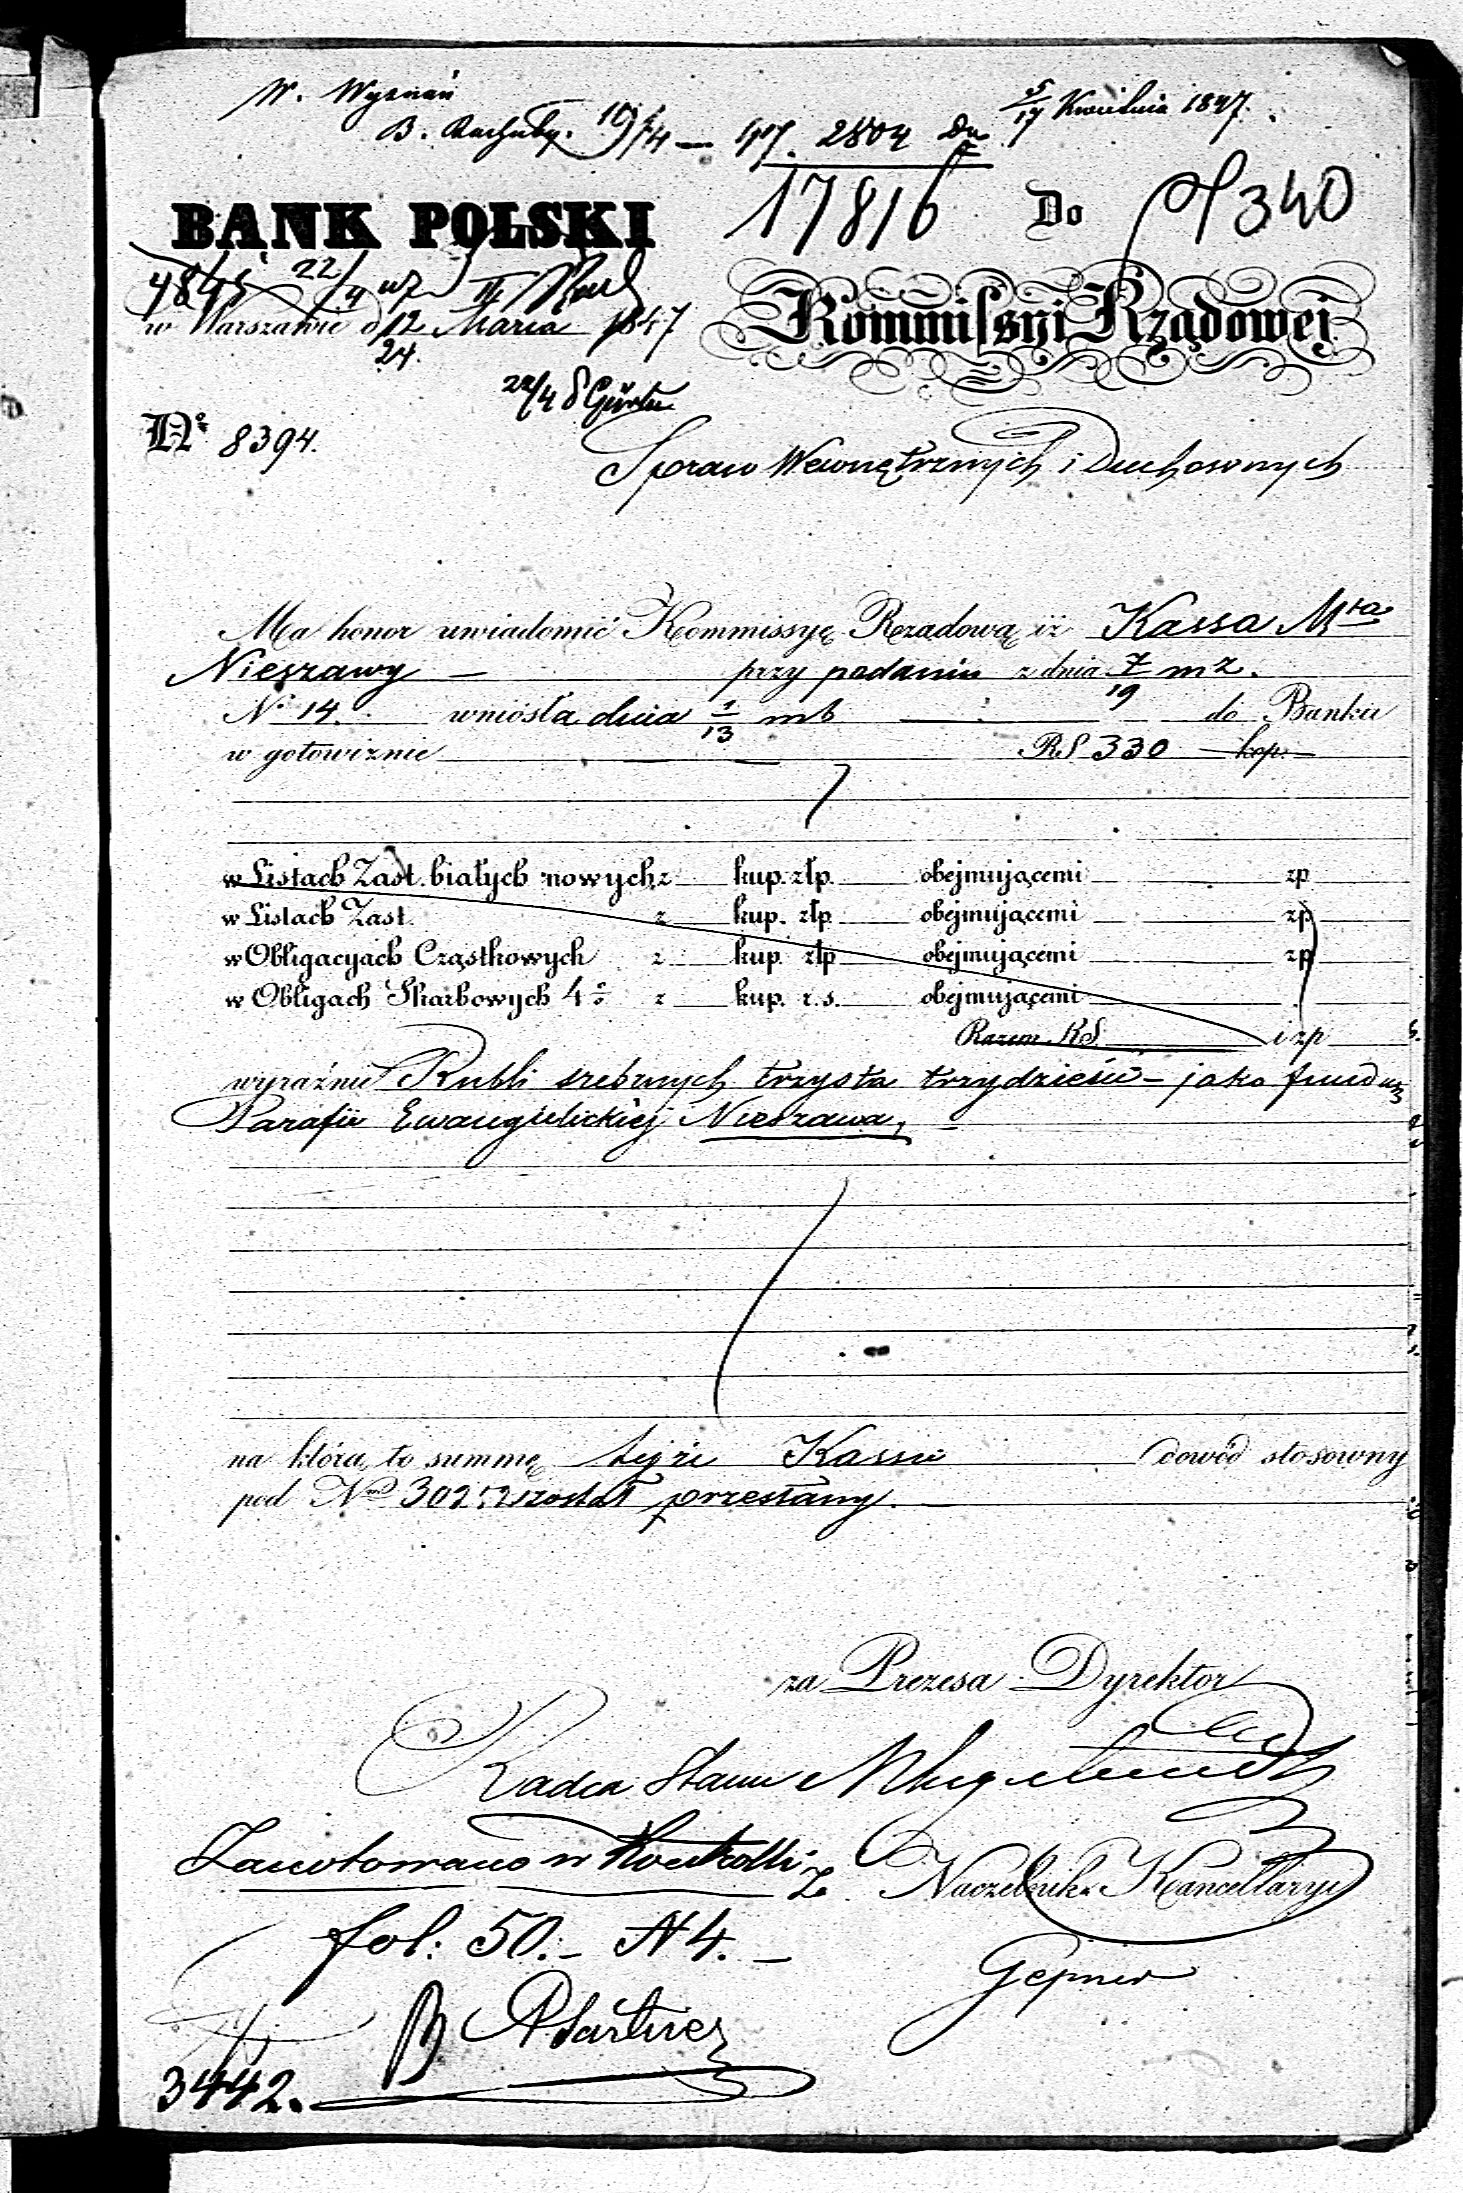 W. Wyznań
5/17 Kwietnia 1847.
B. Rachuby. 2804
17816
Do
340
BANK POLSKI
4845 22/4
w Warszawie d 12/24. Marca 1847
Kommissyi Rządowej
22/4
No 8394.
Spraw Wewnętrznych i Duchownych
Ma honor uwiadomić Kommissyę Rządową iż Kassa Mta
Nieszawy — przy podaniu z dnia 7/19 mz.
No 14. wniosła dnia 1/13 mb do Banku
w gotowiznie RS 330 — kop. —
w Listach Zast. białych nowych z kup. złp. obejmującemi zp
w Listach Zast. z kup. złp obejmującemi zp
w Obligacyach Cząstkowych z kup. złp obejmującemi zp
w Obligach Skarbowych 4% z kup. r.s. obejmującemi
Razem RS. i zp
wyraźnie Rubli srebrnych trzysta trzydzieści — jako fundusz
Parafii Ewangielickiej Nieszawa, —
na którą to summę tejże Kassie dowód stosowny
pod No 30212 został przesłany.
za Prezesa Dyrektor
Radca Stanu
Zanotowano w Kontrolli
Za Naczelnika Kancellaryi
fol: 50. — N 4. —
Gepner
3442.